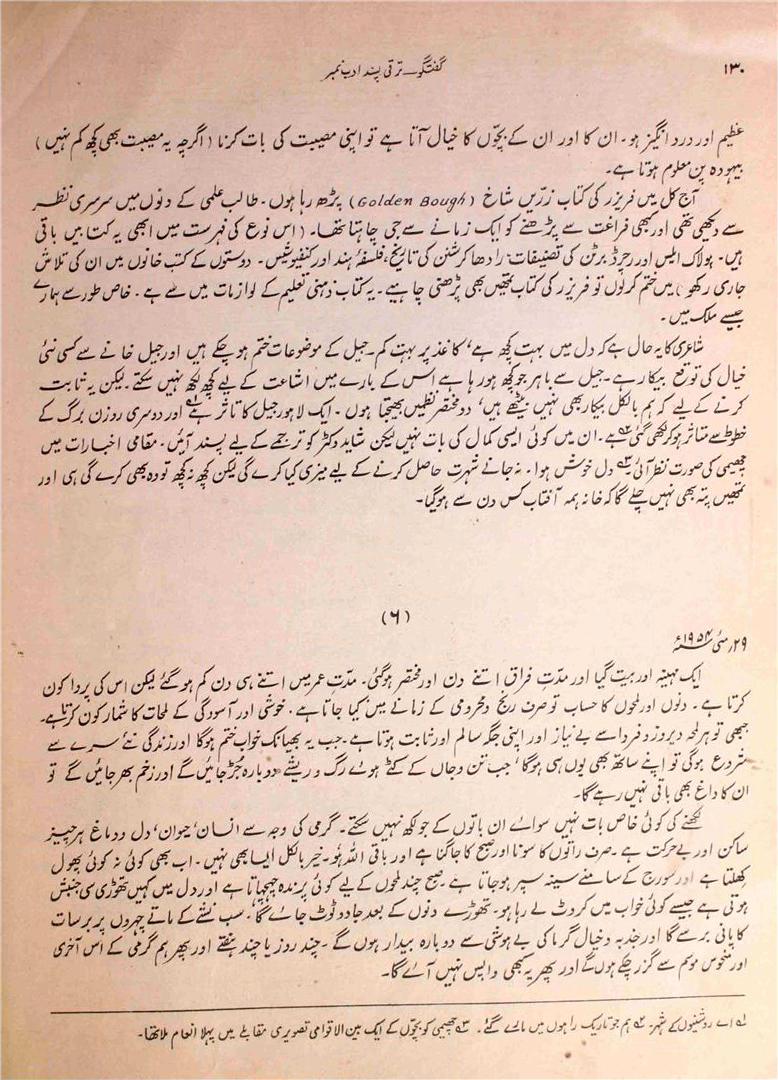 ۱۳۰
گفتگو۔ ترقی پسند ادب نمبر
عظیم اور درد انگیز ہو۔ ان کا اور ان کے بچّوں کا خیال آتا ہے تو اپنی مصیبت کی بات کرنا (اگرچہ یہ مصیبت بھی کچھ کم نہیں)
بیہودہ پن معلوم ہوتا ہے۔
آج کل میں فریزر کی کتاب زرّیں شاخ (Golden Bough) پڑھ رہا ہوں۔ طالب علمی کے دنوں میں سرسری نظر
سے دیکھی تھی اور کبھی فراغت سے پڑھنے کو ایک زمانے سے جی چاہتا تھا۔ (اس نوع کی فہرست میں ابھی یہ کتابیں باقی
ہیں۔ ہولاک ایلس اور رچرڈ برٹن کی تصنیفات، رادھا کرشنن کی تاریخ، فلسفۂ ہند اور کنفیوشیس۔ دوستوں کے کتب خانوں میں ان کی تلاش
جاری رکھو) میں ختم کر لوں تو فریزر کی کتاب تمھیں بھی پڑھنی چاہیے۔ یہ کتاب ذہنی تعلیم کے لوازمات میں سے ہے۔ خاص طور سے ہمارے
جیسے ملک میں۔
شاعری کا یہ حال ہے کہ دل میں بہت کچھ ہے، کاغذ پر بہت کم۔ جیل کے موضوعات ختم ہو چکے ہیں اور جیل خانے سے کسی نئی
خیال کی توقع بیکار ہے۔ جیل سے باہر جو کچھ ہو رہا ہے اس کے بارے میں اشاعت کے لیے کچھ لکھ نہیں سکتے۔ لیکن یہ ثابت
کرنے کے لیے کہ ہم بالکل بیکار بھی نہیں بیٹھے ہیں، دو مختصر نظمیں بھیجتا ہوں۔ ایک لاہور جیل کا تاثر ہے ۱؎ اور دوسری روزن برگ کے
خطوط سے متاثر ہو کر لکھی گئی ہے ۲؎۔ ان میں کوئی ایسی کمال کی بات نہیں لیکن شاید وکٹر کو ترجمے کے لیے پسند آئیں۔ مقامی اخبارات میں
چھیمی کی صورت نظر آئی ۳؎ دل خوش ہوا۔ نہ جانے شہرت حاصل کرنے کے لیے میزی کیا کرے گی لیکن کچھ نہ کچھ تو وہ بھی کرے گی ہی اور
تمھیں پتہ بھی نہیں چلے گا کہ خانہ ہمہ آفتاب کس دن سے ہو گیا۔
(۶)
۲۹؍ مئی ۱۹۵۴ء
ایک مہینہ اور بیت گیا اور مدّتِ فراق اتنے دن اور مختصر ہو گئی۔ مدّتِ عمر میں اتنے ہی دن کم ہو گئے لیکن اس کی پروا کون
کرتا ہے۔ دنوں اور لمحوں کا حساب تو صرف رنج و محرومی کے زمانے میں کیا جاتا ہے، خوشی اور آسودگی کے لمحات کا شمار کون کرتا ہے۔
جبھی تو ہر لمحہ دیروز و فردا سے بے نیاز اور اپنی جگہ سالم اور ثابت ہوتا ہے۔ جب یہ بھیانک خواب ختم ہو گا اور زندگی نئے سرے سے
شروع ہو گی تو اپنے ساتھ بھی یوں ہی ہو گا، جب تن و جاں کے کٹے ہوئے رگ و ریشے دوبارہ جڑ جائیں گے اور زخم بھر جائیں گے تو
ان کا داغ بھی باقی نہیں رہے گا۔
لکھنے کی کوئی خاص بات نہیں سوائے ان باتوں کے جو لکھ نہیں سکتے۔ گرمی کی وجہ سے انسان، حیوان، دل و دماغ ہر چیز
ساکن اور بے حرکت ہے۔ صرف راتوں کا سونا اور صبح کا جاگنا ہے اور باقی اللہ ہُو۔ خیر بالکل ایسا بھی نہیں۔ اب بھی کوئی نہ کوئی پھول
کھلتا ہے اور سورج کے سامنے سینہ سپر ہو جاتا ہے۔ صبح چند لمحوں کے لیے کوئی پرندہ چہچہاتا ہے اور دل میں کہیں تھوڑی سی جنبش
ہوتی ہے جیسے کوئی خواب میں کروٹ لے رہا ہو۔ تھوڑے دنوں کے بعد جادو ٹوٹ جائے گا۔ سب نشے کے ماتے چہروں پر برسات
کا پانی برسے گا اور جذبہ و خیال گرما کی بے ہوشی سے دوبارہ بیدار ہوں گے۔ چند روز یا چند ہفتے اور پھر ہم گرمی کے اس آخری
اور منحوس موسم سے گزر چکے ہوں گے اور پھر یہ کبھی واپس نہیں آئے گا۔
۱؎ اے روشنیوں کے شہر۔ ۲؎ ہم جو تاریک راہوں میں مارے گئے۔ ۳؎ چھیمی کو بچّوں کے ایک بین الاقوامی تصویری مقابلے میں پہلا انعام ملا تھا۔